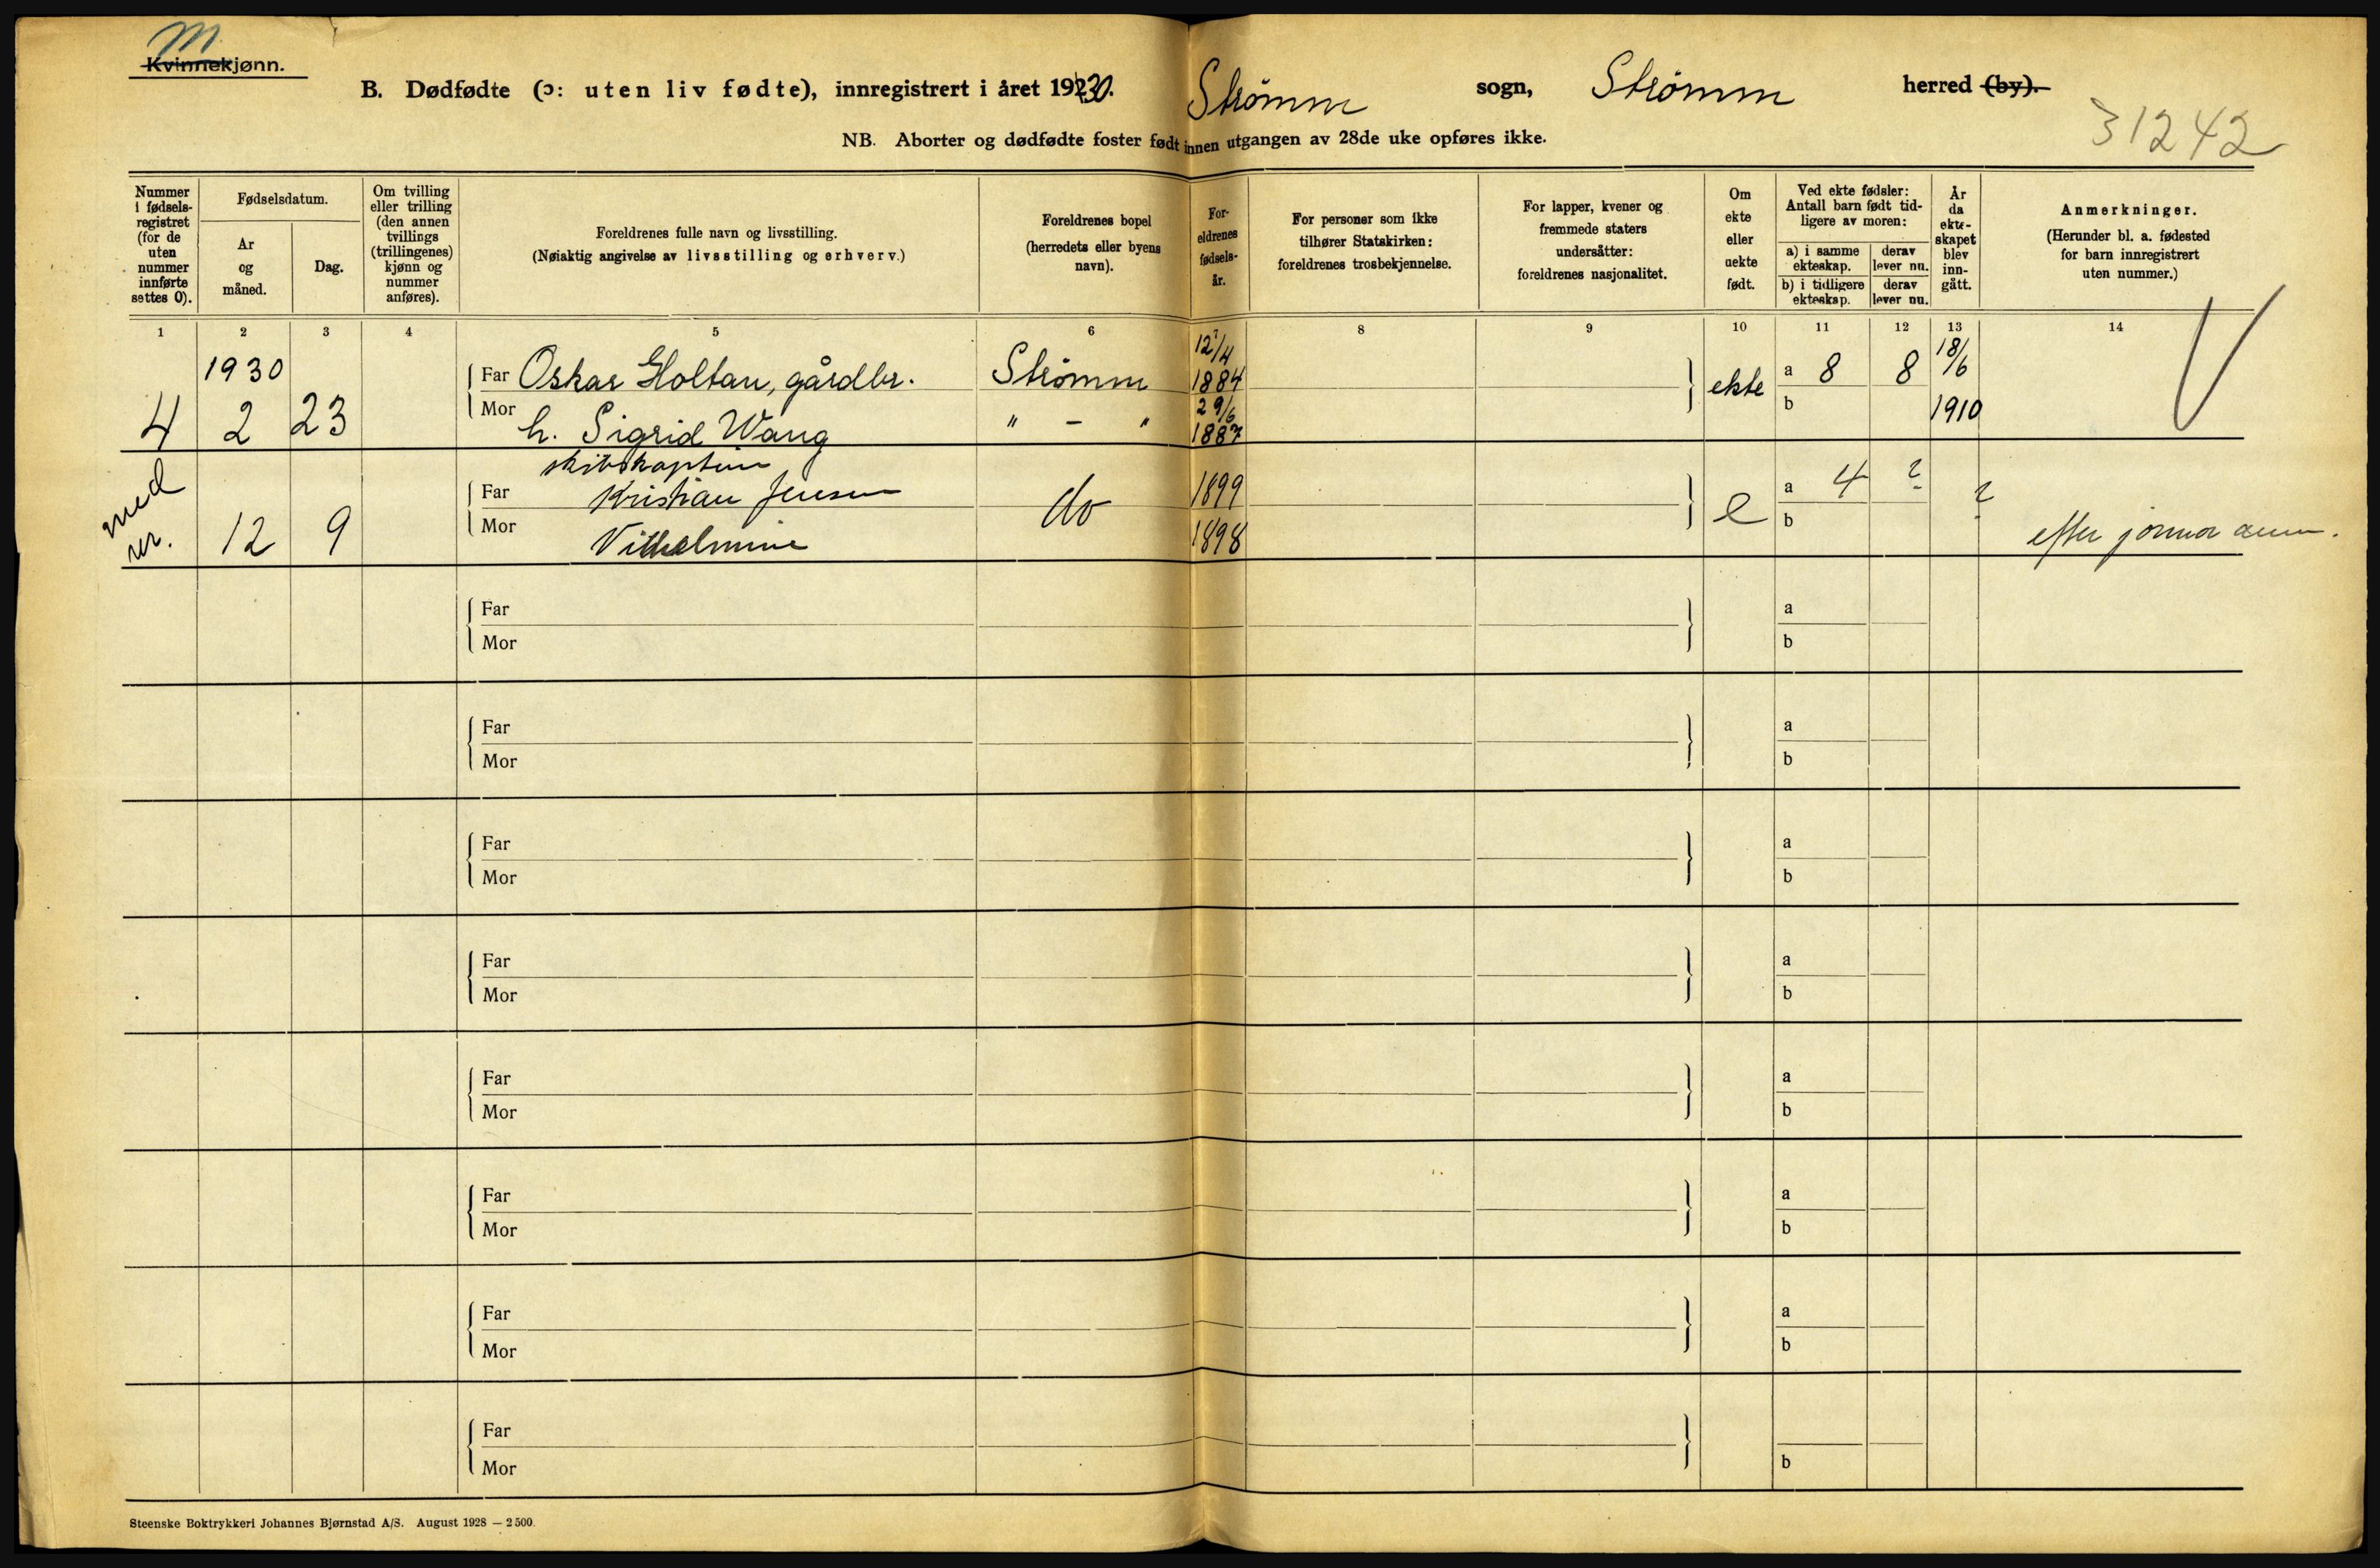 M.
Kvinnekjønn.
B. Dødfødte (ɔ: uten liv fødte), innregistrert i året 1930. Strømm sogn, Strømm herred (by).
31242
NB. Aborter og dødfødte foster født innen utgangen av 28de uke opføres ikke.
Nummer i fødselsregistret (for de uten nummer innførte settes 0).
Fødselsdatum.
År og måned.
Dag.
Om tvilling eller trilling (den annen tvillings (trillingenes) kjønn og nummer anføres).
Foreldrenes fulle navn og livsstilling.
(Nøiaktig angivelse av livsstilling og erhverv.)
Foreldrenes bopel (herredets eller byens navn).
Foreldrenes fødselsår.
For personer som ikke tilhører Statskirken: foreldrenes trosbekjennelse.
For lapper, kvener og fremmede staters undersåtter: foreldrenes nasjonalitet.
Om ekte eller uekte født.
Ved ekte fødsler: Antall barn født tidligere av moren:
a) i samme ekteskap.
derav lever nu.
b) i tidligere ekteskap.
derav lever nu.
År da ekteskapet blev inngått.
Anmerkninger.
(Herunder bl. a. fødested for barn innregistrert uten nummer.)
1 2 3 4 5 6 7 8 9 10 11 12 13 14
1930
4 2 23
Far Oskar Holtan, gårdbr. Strømm 12/4 1884
Mor h. Sigrid Wang " - " 29/6 1887
ekte a 8 8 18/6 1910
b
med nr. 12 9
skibskaptein
Far Kristian Jensen do 1899
Mor Vilhelmine 1898
e a 4 ? ?
b
efter jormor anm.
Far a
Mor b
Far a
Mor b
Far a
Mor b
Far a
Mor b
Far a
Mor b
Far a
Mor b
Far a
Mor b
Far
Mor b
Steenske Boktrykkeri Johannes Bjørnstad A/S. August 1928 — 2500.